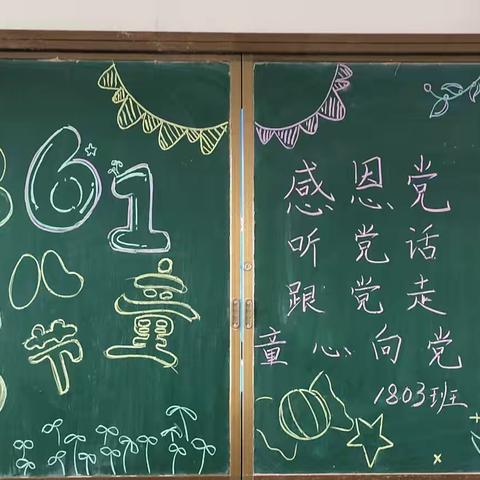 61
儿童
节
感恩党
听党话
跟党走
童心向党
1803班